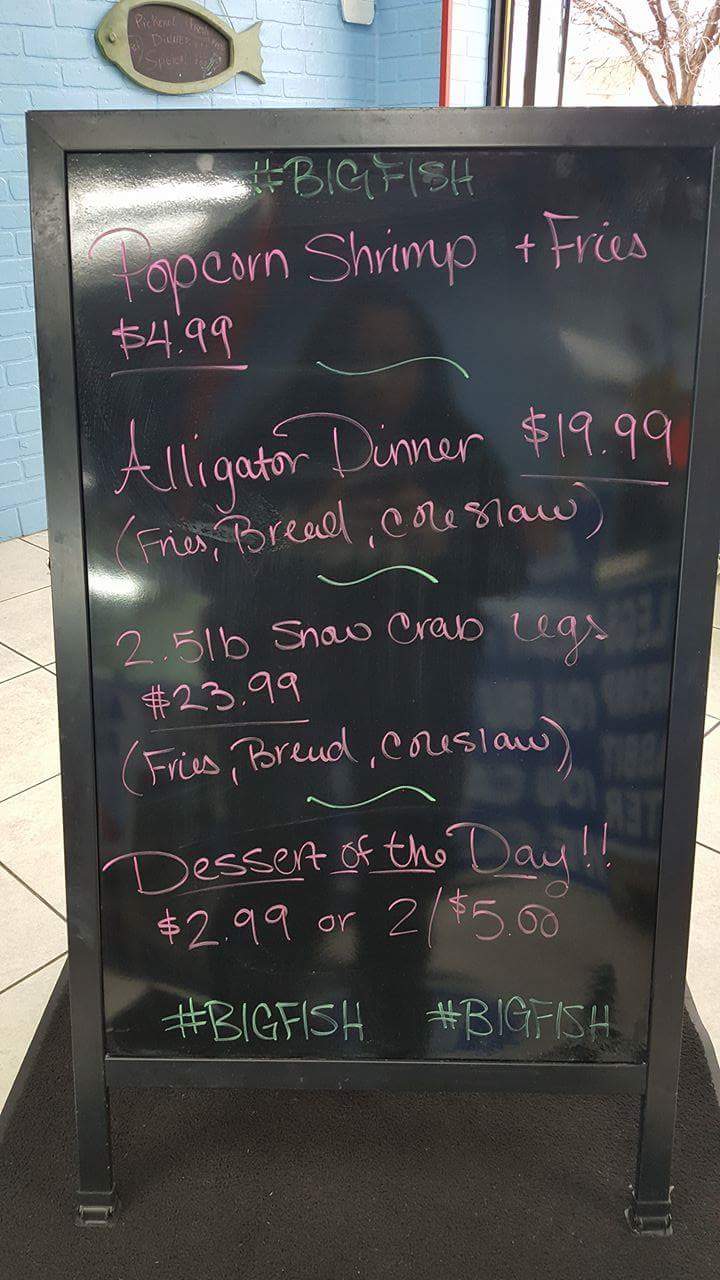 Pickerel
Dinner
Special
#BIGFISH
Popcorn Shrimp + Fries
$4.99
Alligator Dinner $19.99
(Fries, Bread, coleslaw)
2.5lb Snow Crab Legs
$23.99
(Fries, Bread, coleslaw)
Dessert of the Day!!
$2.99 or 2/$5.00
#BIGFISH #BIGFISH